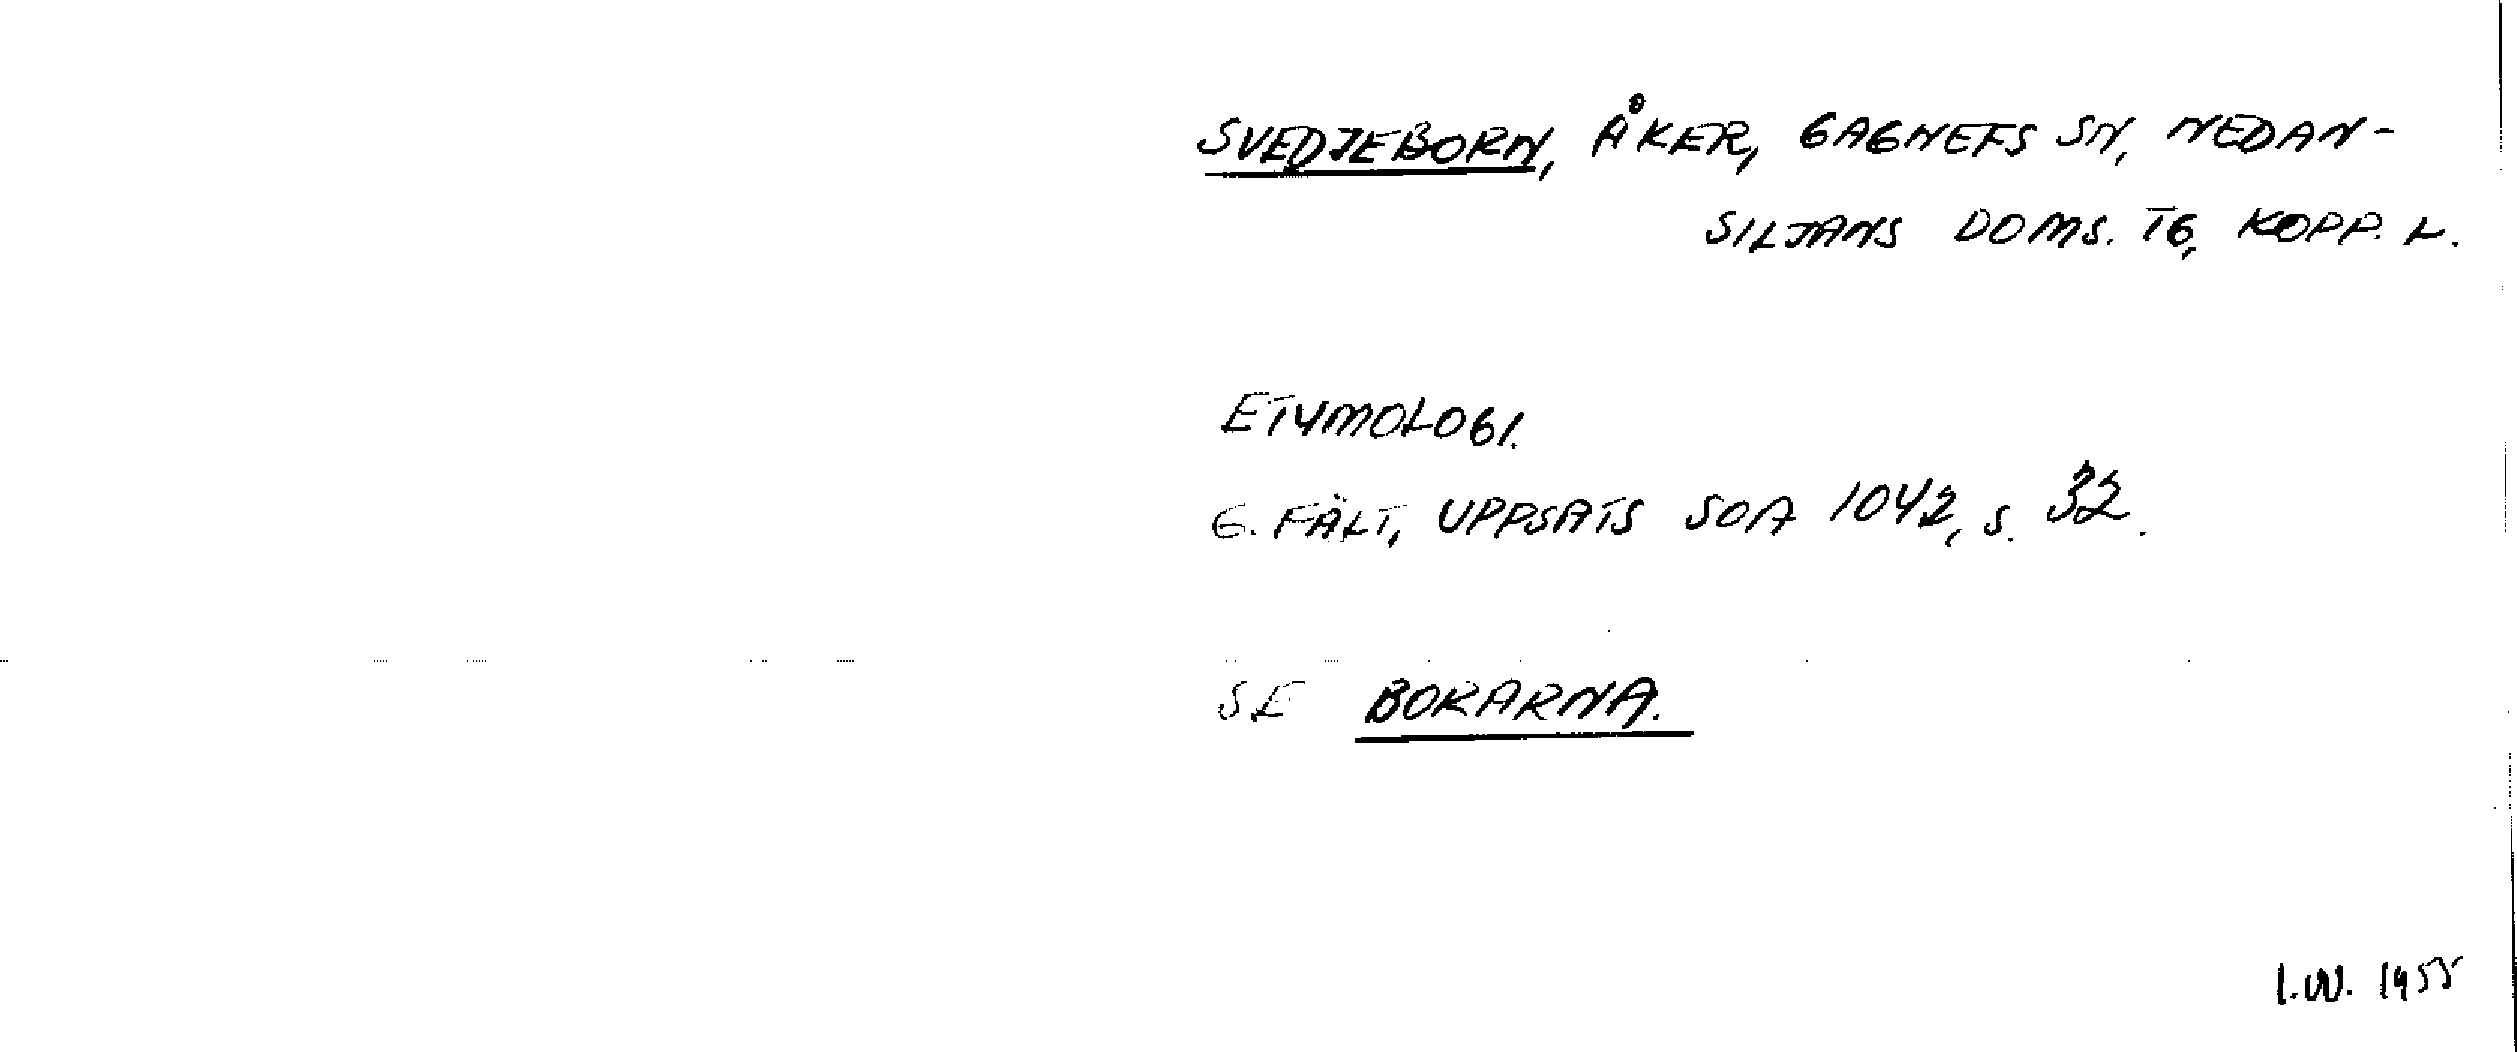 SVEDJEBORN, ÅKER, GAGNEFS SN, NEDAN-
SILJANS DOMS. TG, KOPP. L.
ETYMOLOGI.
G. FÄLT, UPPSATS SOA 1042, S. 32.
SE BORARNA.
I.W. 1955